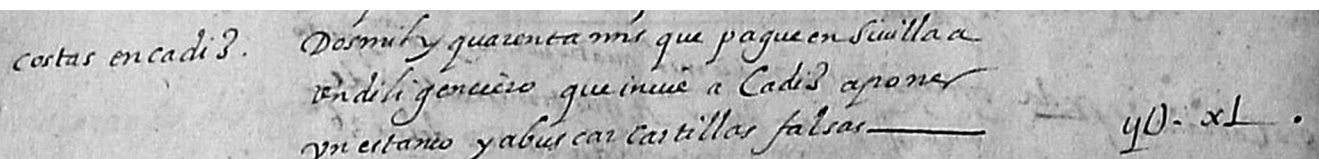 costas en cadiz. Dos mil y quarenta mrs que pague en Sivilla a
un diligenciero que invie a Cadiz a poner
yn estanco y a buscar cartillas falsas yU- xL.